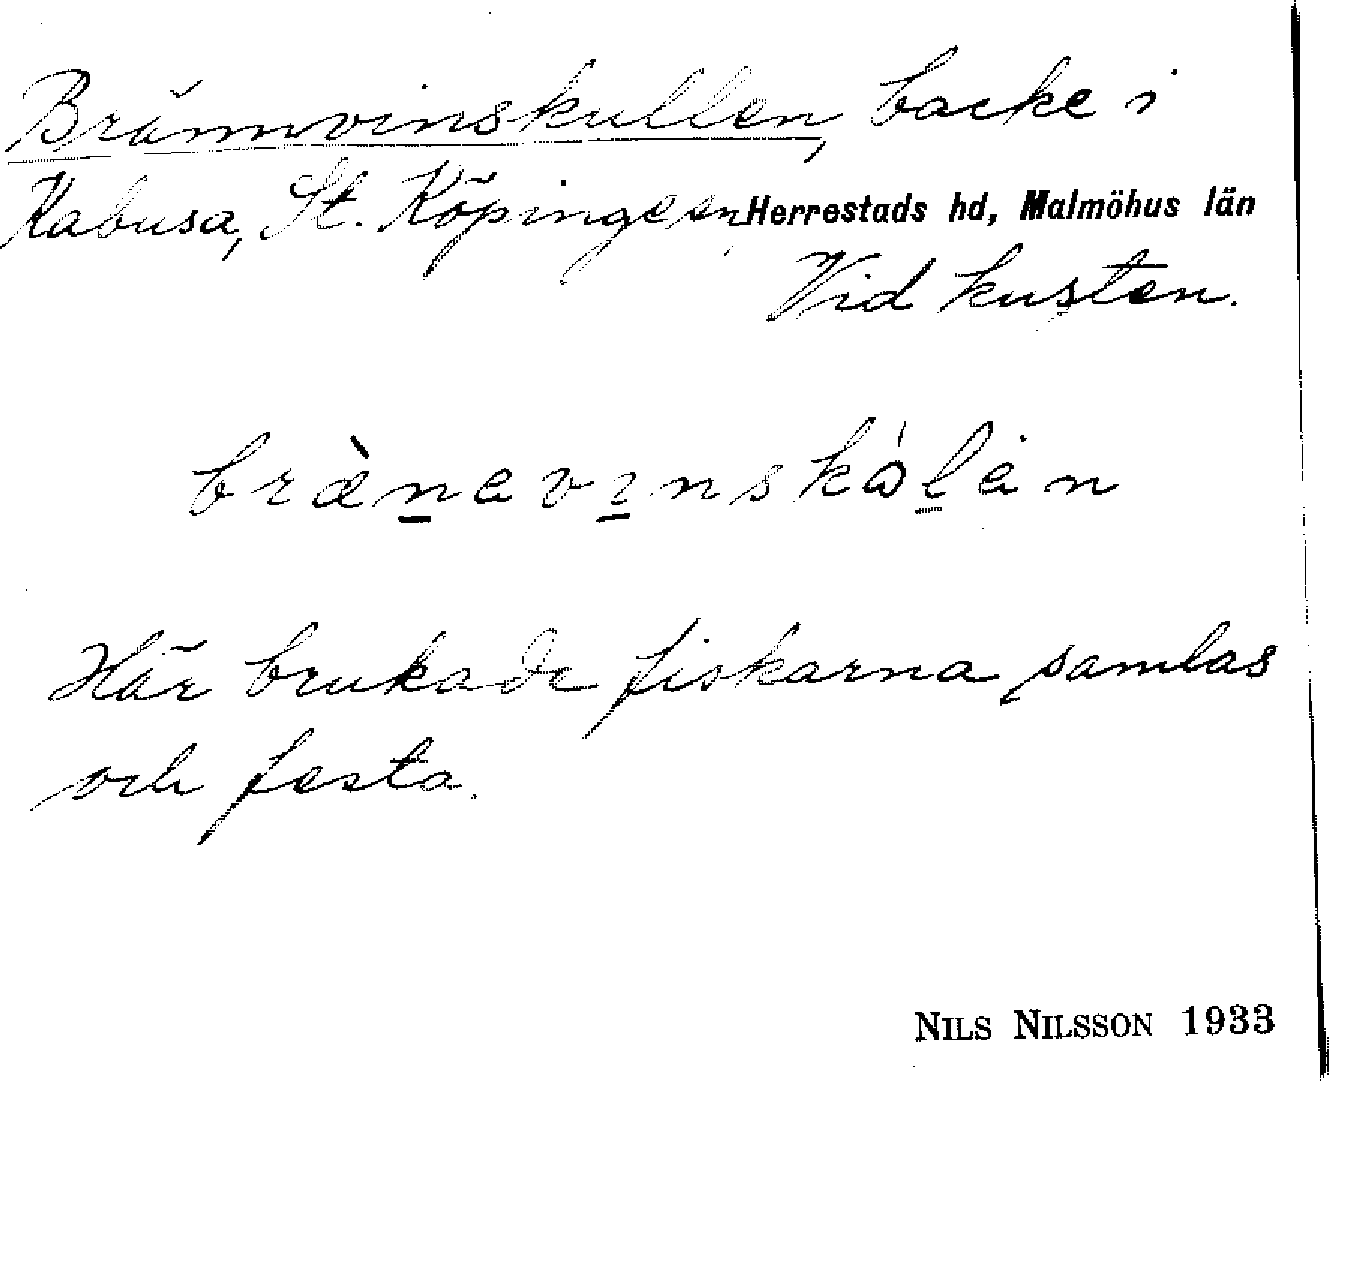 Brännvinskullen, backe i
Kabusa, St. Köpinge sn, Herrestads hd, Malmöhus län
Vid kusten.
Här brukade fiskarna samlas
och festa.
NILS NILSSON 1933